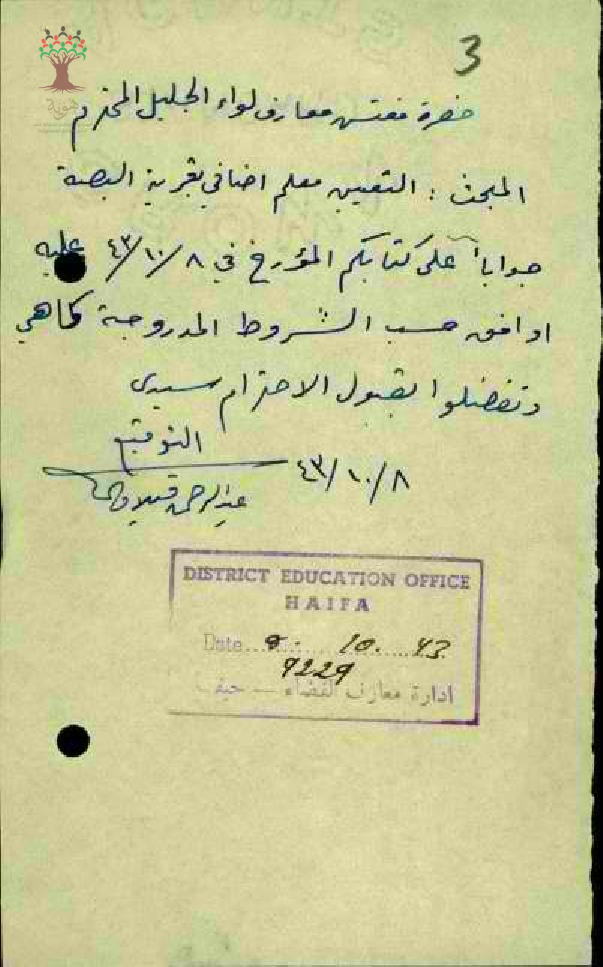 3
هوية
حضرة مفتش معارف لواء الجليل المحترم
المبحث : التعيين معلم اضافي بقرية البصة
جواباً على كتابكم المؤرخ في ٨/١٠/٤٣ عليه
اوافق حسب الشروط المدروجة كما هي
وتفضلوا بقبول الاحترام سيدي
التوقيع
٨/١٠/٤٣
عبد الرحمن
DISTRICT EDUCATION OFFICE
HAIFA
Date 9. 10. 43
9229
ادارة معارف القضاء — حيفا